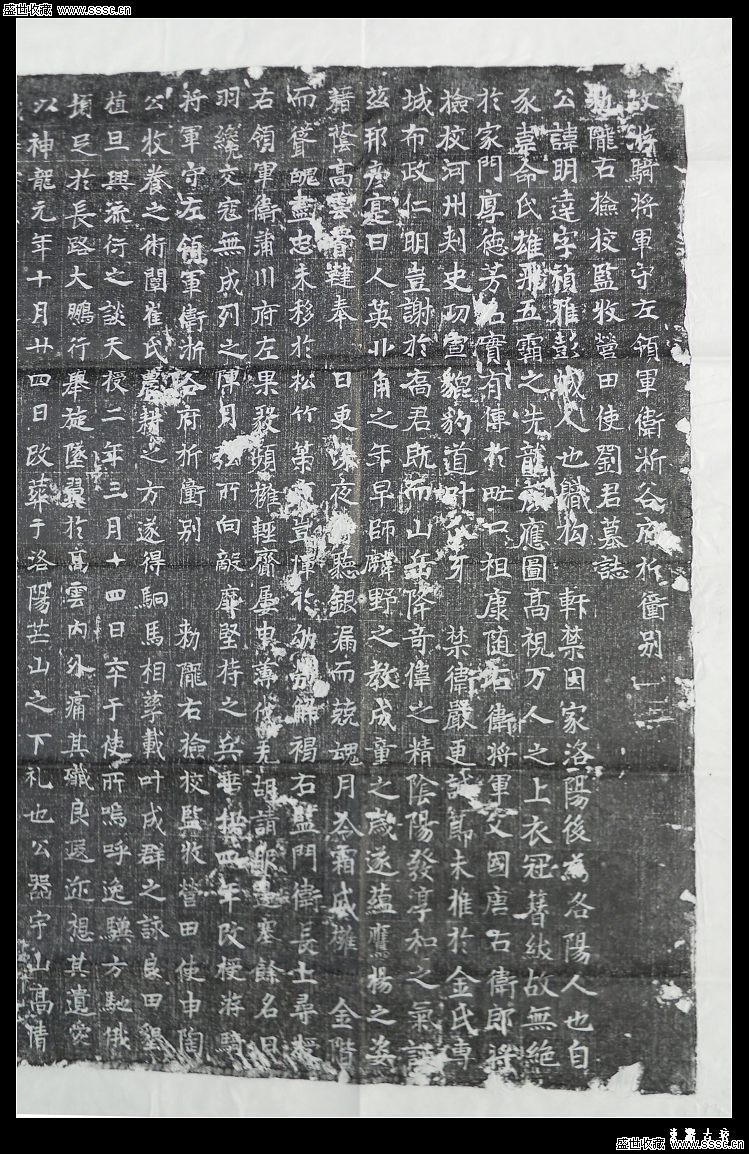 盛世收藏 www.sssc.cn
故游騎將軍守左領軍衛淅谷府折衝別
勅隴右檢校監牧營田使劉君墓誌
公諱明達字禎雅彭城人也職构 軒禁因家洛陽後為洛陽人也自
豕韋命氏雄飛五霸之先龍應圖高視万人之上衣冠簪紱故無絕
於家門厚德芳名實有傳於祖康随右衛將軍父國唐右衛郎將
檢校河州刾史功宣貔豹道 牙 禁衛嚴更誠節未推於金氏專
城布政仁明豈謝於高君既而山岳降奇偉之精陰陽發淳和之氣誕
茲邦彥寔曰人英丱角之年早師麟野之教成童之歲遂蘊鷹楊之姿
藉蔭高雲 鞬奉 日更夜聽銀漏而兢魂月冷霜威擁 金階
而聳魄盡忠未移於松竹豈憚於解褐右監門衛長上尋授
右領軍衛蒲川府左果毅頻擁輕齎塞餘名月
羽纔交寇無成列之陣月所向敵靡堅持之兵垂拱四年改授游騎
將軍守左領軍衛淅谷府折衝別 勅隴右檢校監牧營田使申陶
公牧養之術闡崔氏農耕之方遂得駉馬相孳載叶成群之詠良田墾
植旦興流衍之談天授二年三月十四日卒于使所嗚呼逸驥方馳俄
頓足於長路大鵬行舉旋墜翼於高雲內外痛其殲良遐迩想其遺
以神龍元年十月廿四日改葬于洛陽芒山之下礼也公器宇山高情
盛世收藏 www.sssc.cn